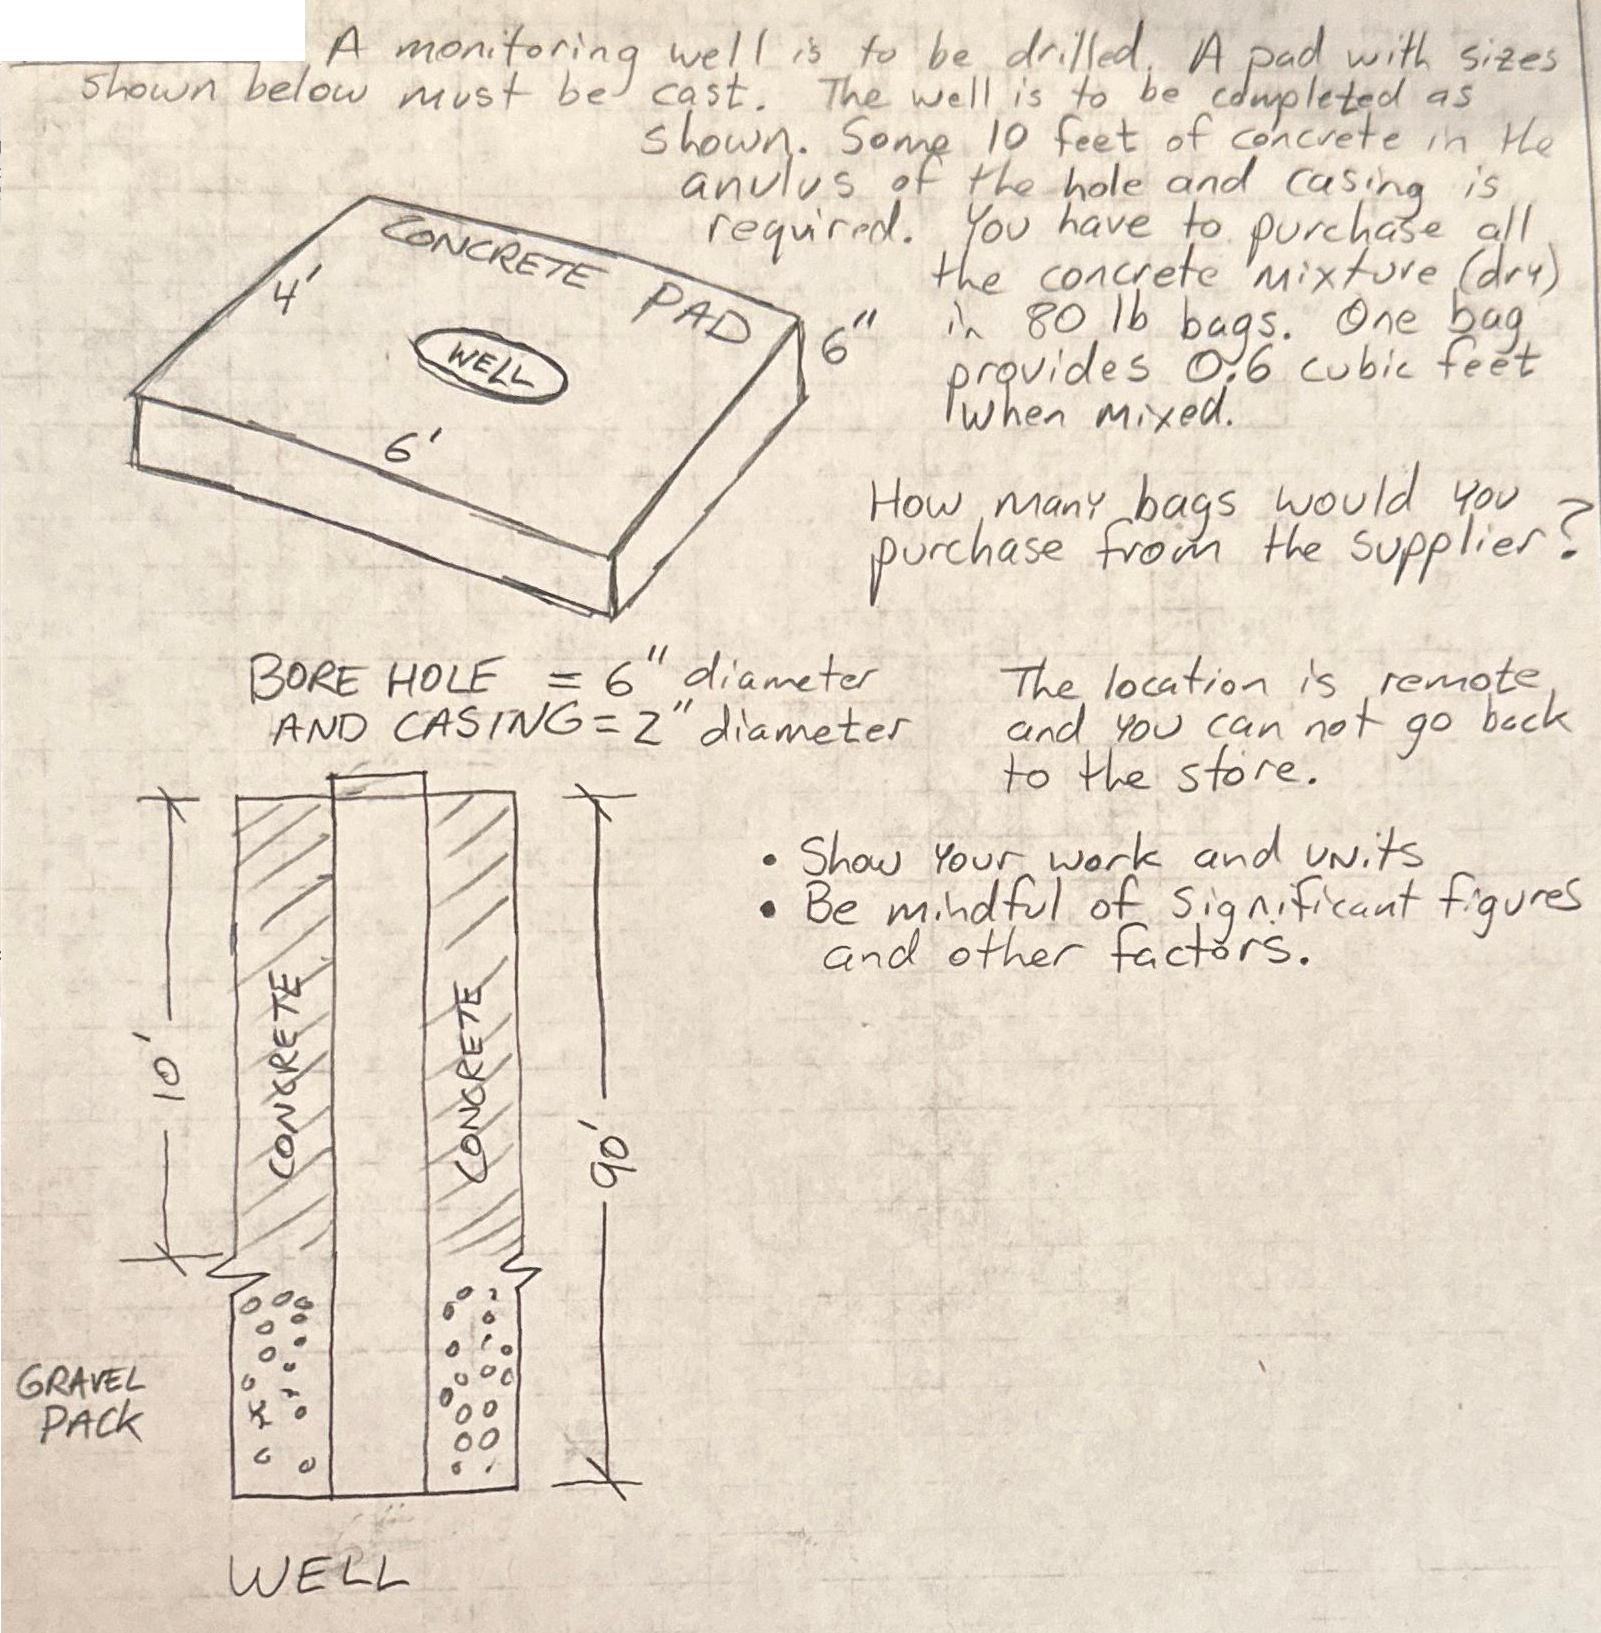 A monitoring well is to be drilled. A pad with sizes
shown below must be cast. The well is to be completed as
shown. Some 10 feet of concrete in the
anulus of the hole and casing is
required. You have to purchase all
the concrete mixture (dry)
in 80 lb bags. One bag
provides 0.6 cubic feet
when mixed.
CONCRETE PAD
4'
6"
WELL
6'
How many bags would you
purchase from the supplier?
BORE HOLE = 6" diameter
AND CASING = 2" diameter
The location is remote,
and you can not go back
to the store.
• Show your work and units
• Be mindful of significant figures
and other factors.
10'
CONCRETE
CONCRETE
90'
GRAVEL
PACK
WELL